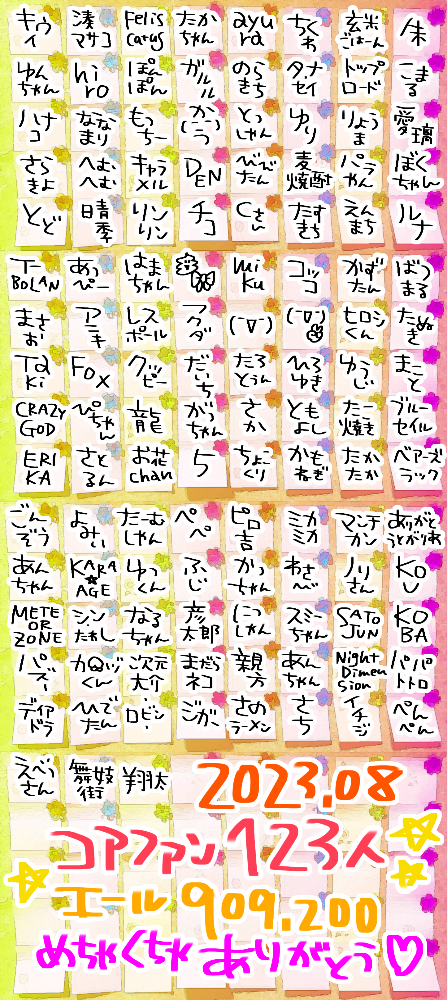 キウイ 湊マサコ Felis Catus たかちゃん ayura ちくわ 玄米ごはーん 朱
ゆんちゃん hiro ぽんぽん ガルル のらきち タナセイ トップロード こまる
ハナコ ななまり もっちー とっしゃん ゆり りょうま 愛璃
さらきよ へむへむ キャラメル DEN べべたん 麦焼酎 パラやん ぼくちゃん
とど 日晴季 リンリン チコ Cさん たすきち えんまち ルナ
T-BOLAN あっぴー はまちゃん miku コッコ かずたん ばつまる
まさお アニキ レスポール アクダ (¯▽¯) (¯▽¯) ヒロシくん たぬき
Taki FOX グッピー だいち たろとぅん ひろゆき ゆうじぃ まこと
CRAZY GOD ぴちゃん 龍 がっちゃん さか ともよし たー焼き ブルーセイル
ERIKA さとるん お花chan 5 ちょこくり かもねぎ たかたか ベアーズラック
ごんぞう よみぃ たーむけん ペペ ピロ吉 ミカミカ マンテカン ありがとうとがりね
あんちゃん KARA★AGE ゆっくん ふじ かっちゃん わさべ ノリさん KOU
METEORZONE シンたれし なるちゃん 彦太郎 にっしゃん スミーちゃん SATOJUN KOBA
バズー カロッヅくん 次元大介 まだらネコ 親方 あんちゃん Night Dimension パパトトロ
デイアドラ ひでたん ロビン ジガ さのラーメン さち イチジ ぺんぺん
えべっさん 舞妓街 翔太
2023.08
コアファン123人
エール909.200
めちゃくちゃありがとう♡